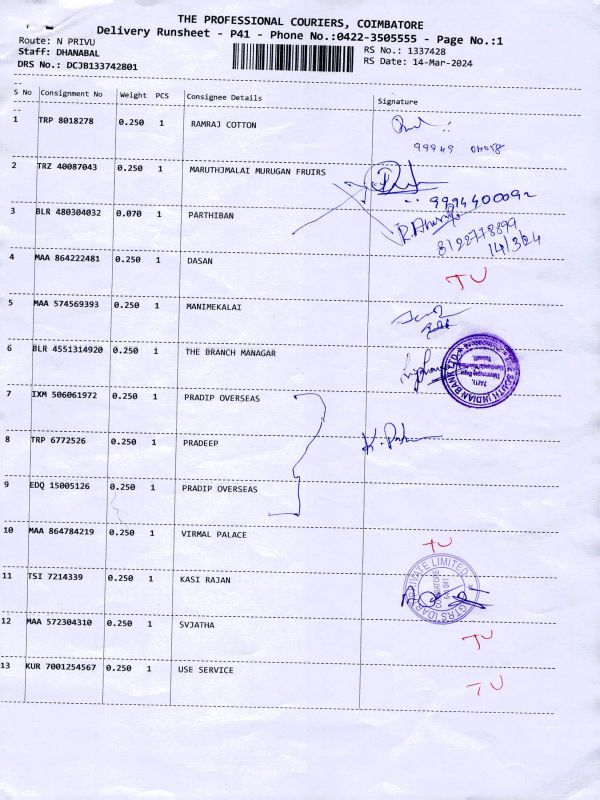 THE PROFESSIONAL COURIERS, COIMBATORE
Delivery Runsheet - P41 - Phone No.:0422-3505555 - Page No.:1
Route: N PRIVU
RS No.: 1337428
Staff: DHANABAL
RS Date: 14-Mar-2024
DRS No.: DCJB133742801
S No Consignment No Weight PCS Consignee Details Signature
1 TRP 8018278 0.250 1 RAMRAJ COTTON
99949
2 TRZ 40087043 0.250 1 MARUTHJMALAI MURUGAN FRUIRS
9994400092
3 BLR 480304032 0.070 1 PARTHIBAN
8122778899
14/3/24
4 MAA 864222481 0.250 1 DASAN TU
5 MAA 574569393 0.250 1 MANIMEKALAI
6 BLR 4551314920 0.250 1 THE BRANCH MANAGAR
SOUTH INDIAN BANK LTD
7 IXM 506061972 0.250 1 PRADIP OVERSEAS
8 TRP 6772526 0.250 1 PRADEEP
9 EDQ 15005126 0.250 1 PRADIP OVERSEAS
10 MAA 864784219 0.250 1 VIRMAL PALACE TU
11 TSI 7214339 0.250 1 KASI RAJAN
PRIVATE LIMITED
COIMBATORE
641 041
12 MAA 572304310 0.250 1 SVJATHA TU
13 KUR 7001254567 0.250 1 USE SERVICE TU